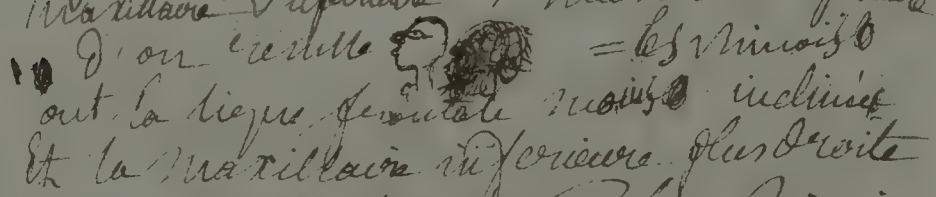 maxillaire
D'on resulte = les chinois
ont la ligne frontale moins inclinée
Et la maxillaire inferieure plus droite